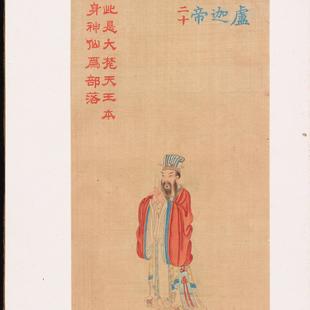 盧迦帝
二十
此是大梵天王本
身神仙爲部落